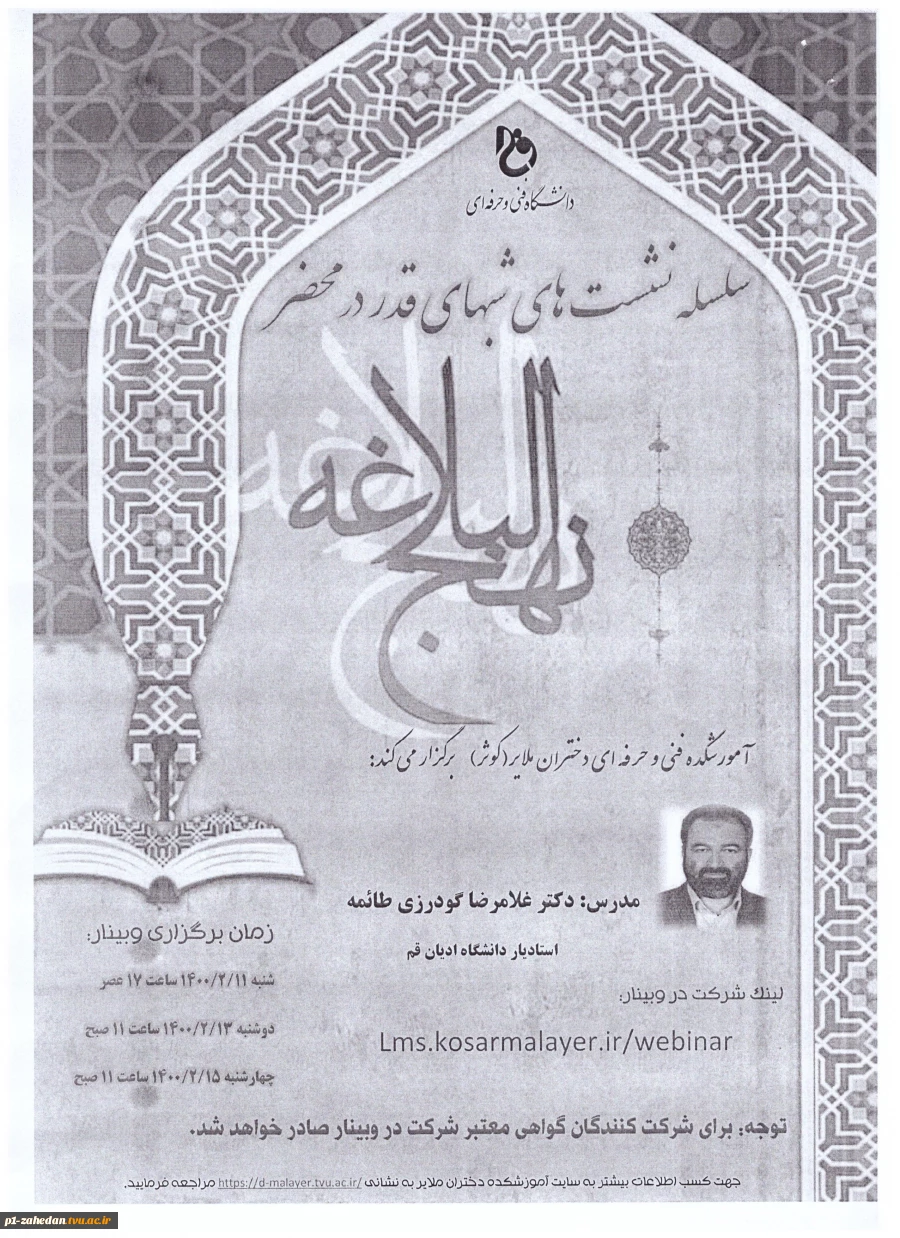 دانشگاه فنی و حرفه ای
سلسله نشست های شبهای قدر در محضر
نهج البلاغه
آموزشکده فنی و حرفه ای دختران ملایر (کوثر) برگزار می کند:
مدرس: دکتر غلامرضا گودرزی طائمه
استادیار دانشگاه ادیان قم
لینک شرکت در وبینار:
Lms.kosarmalayer.ir/webinar
زمان برگزاری وبینار:
شنبه ۱۴۰۰/۲/۱۱ ساعت ۱۷ عصر
دوشنبه ۱۴۰۰/۲/۱۳ ساعت ۱۱ صبح
چهارشنبه ۱۴۰۰/۲/۱۵ ساعت ۱۱ صبح
توجه: برای شرکت کنندگان گواهی معتبر شرکت در وبینار صادر خواهد شد.
جهت کسب اطلاعات بیشتر به سایت آموزشکده دختران ملایر به نشانی https://d-malayer.tvu.ac.ir/ مراجعه فرمایید.
p1-zahedan.tvu.ac.ir